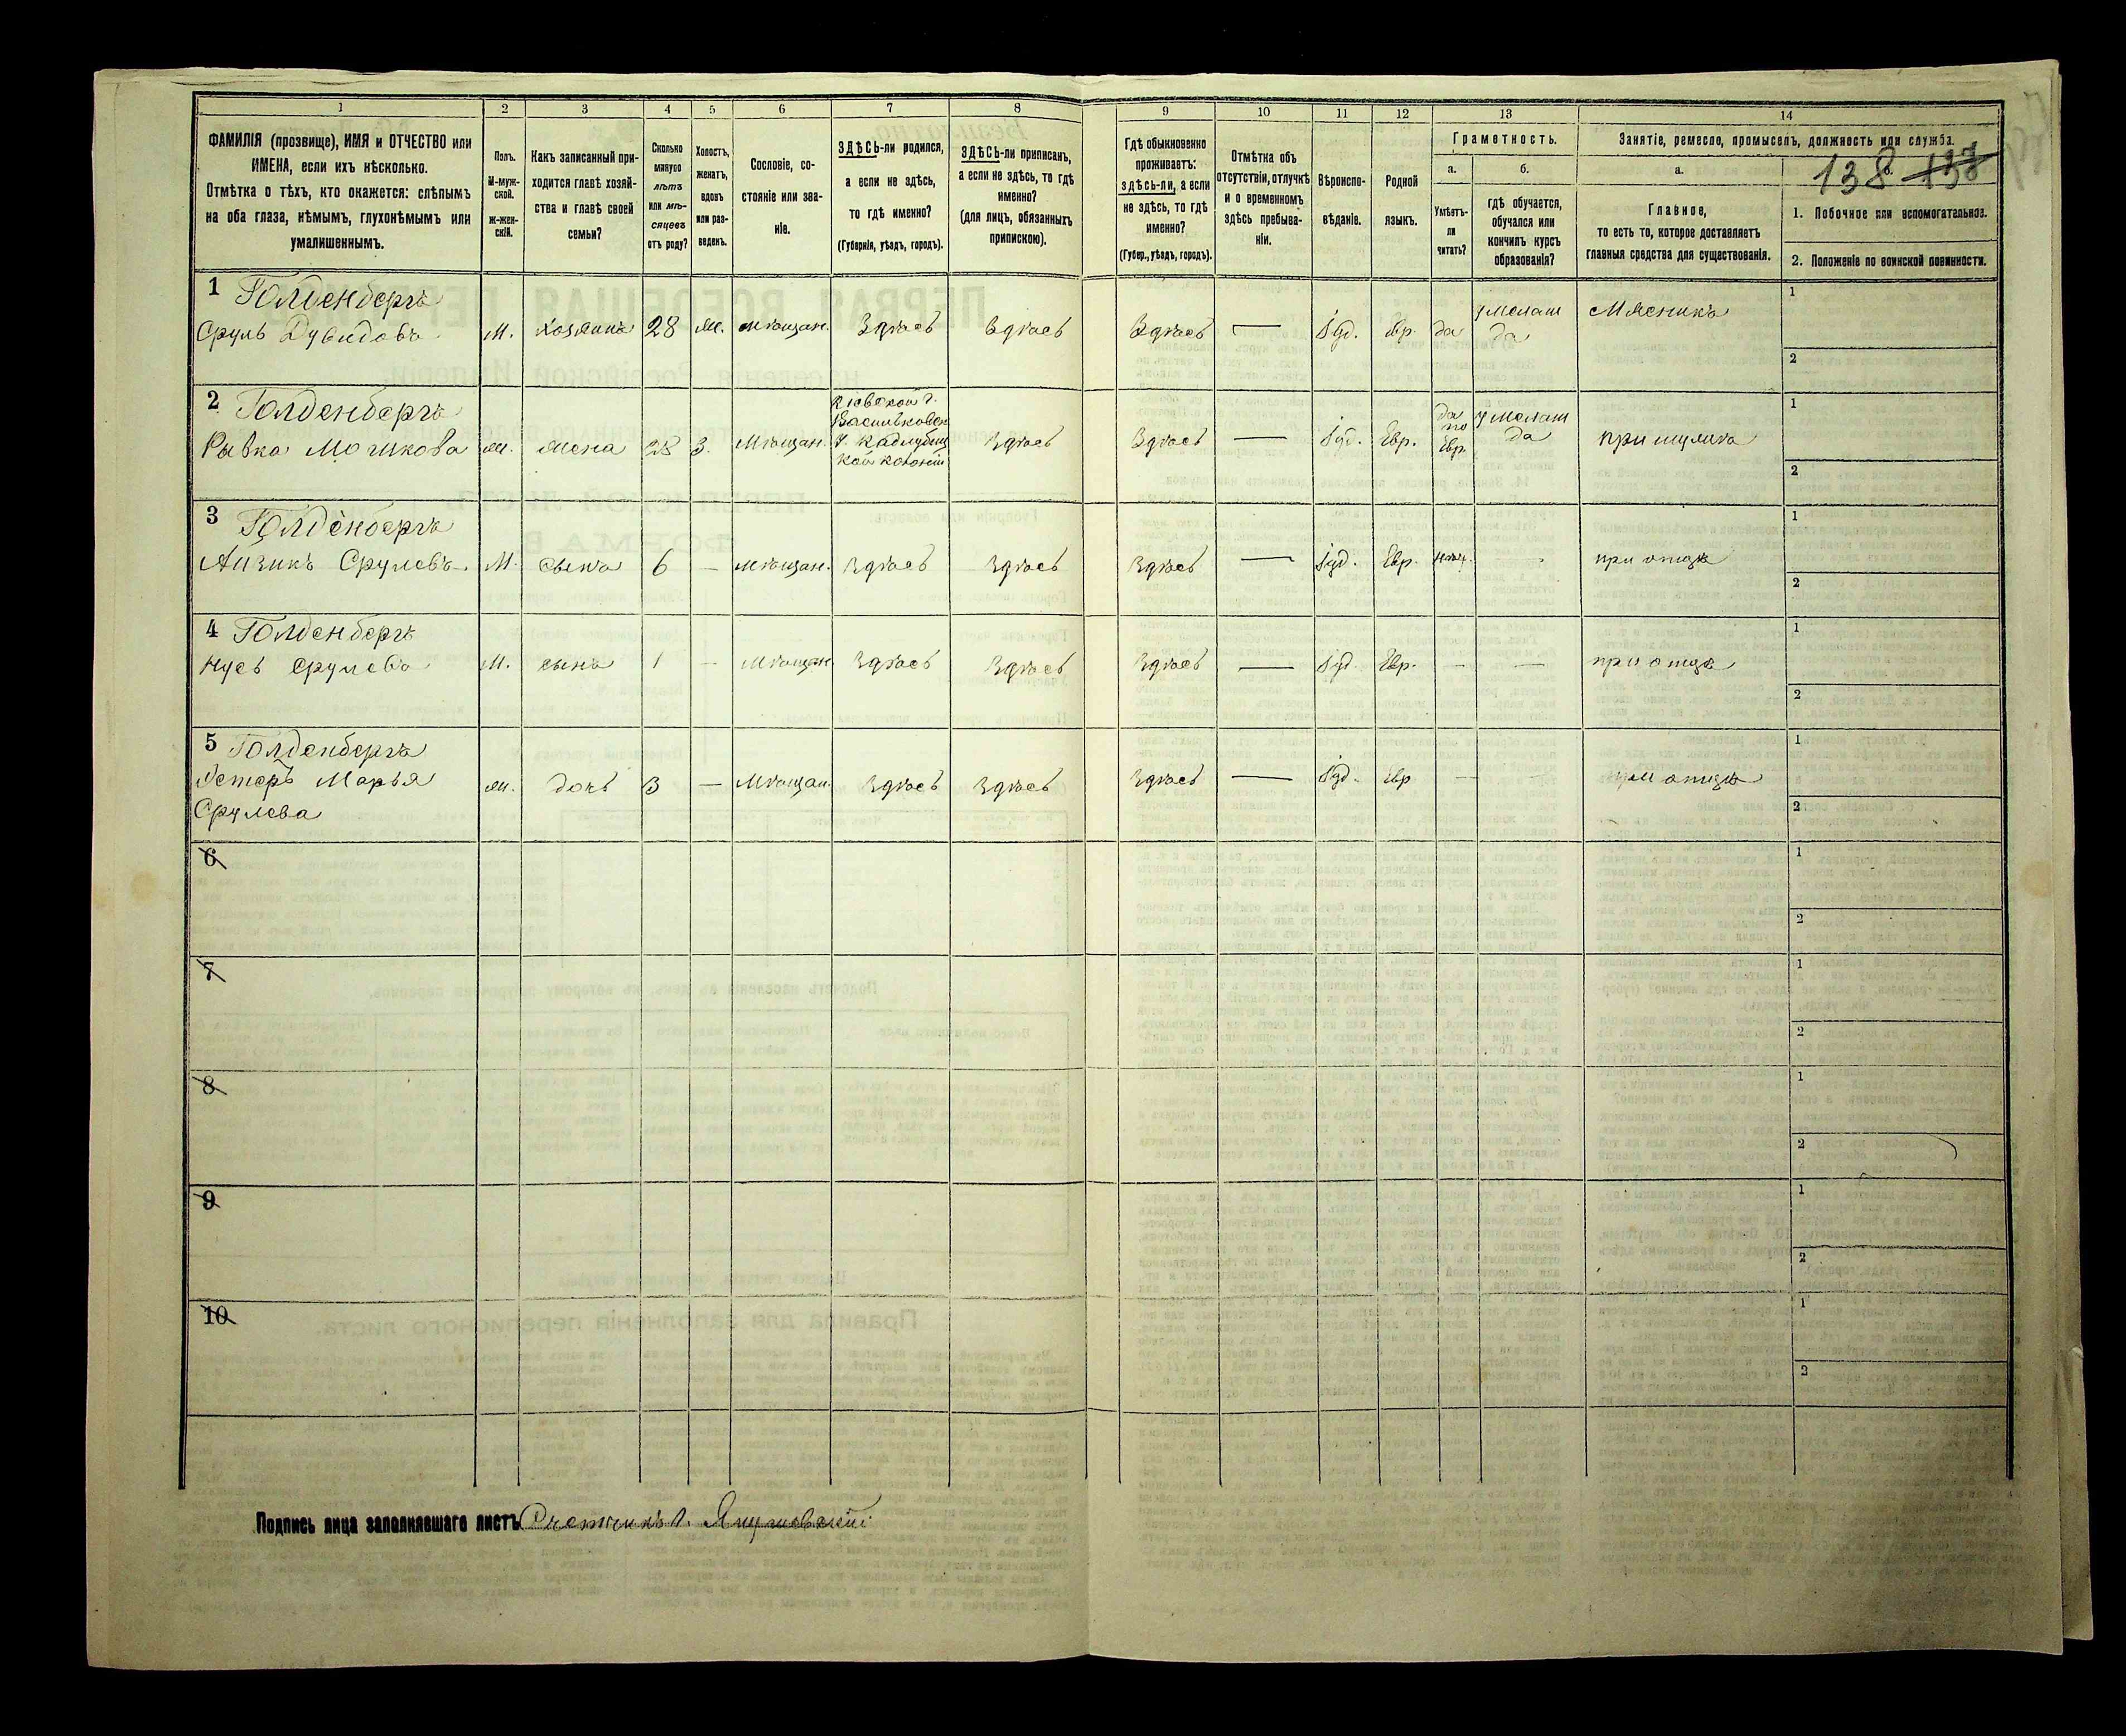 1 2 3 4 5 6 7 8 9 10 11 12 13 14
ФАМИЛІЯ (прозвище), ИМЯ и ОТЧЕСТВО или
ИМЕНА, если ихъ нѣсколько.
Отмѣтка о тѣхъ, кто окажется: слѣпымъ
на оба глаза, нѣмымъ, глухонѣмымъ или
умалишеннымъ.
Полъ.
М-муж-
ской.
Ж-жен-
скій.
Какъ записанный при-
ходится главѣ хозяй-
ства и главѣ своей
семьи?
Сколько
минуло
лѣтъ
или мѣ-
сяцевъ
отъ роду?
Холостъ,
женатъ,
вдовъ
или раз-
веденъ.
Сословіе, со-
стояніе или зва-
ніе.
ЗДѢСЬ-ли родился,
а если не здѣсь,
то гдѣ именно?
(Губернія, уѣздъ, городъ).
ЗДѢСЬ-ли приписанъ,
а если не здѣсь, то гдѣ
именно?
(для лицъ, обязанныхъ
припискою).
Гдѣ обыкновенно
проживаетъ:
здѣсь-ли, а если
не здѣсь, то гдѣ
именно?
(Губер., уѣздъ, городъ).
Отмѣтка объ
отсутствіи, отлучкѣ
и о временномъ
здѣсь пребыва-
ніи.
Вѣроиспо-
вѣданіе.
Родной
языкъ.
Грамотность.
а.
Умѣетъ-
ли
читать?
б.
гдѣ обучается,
обучался или
кончилъ курсъ
образованія?
Занятіе, ремесло, промыселъ, должность или служба.
а.
Главное,
то есть то, которое доставляетъ
главныя средства для существованія.
138 137
1. Побочное или вспомогательное.
2. Положеніе по воинской повинности.
1 Голденбергъ
Сруль Дувидовъ М. хозяинъ 28 Ж. мѣщан. Здѣсь Здѣсь Здѣсь — Іуд. Евр. да у мелам да Мясникъ
1
2
2 Голденбергъ
Рывка Мошкова Ж. жена 28 З. Мѣщан.
Кіевской г.
Васильковск.
Здѣсь Здѣсь — Іуд. Евр.
да
по
Евр.
у мелам
да
при мужѣ
1
2
3 Голденбергъ
Айзикъ Срулевъ М. сынъ 6 — мѣщан. Здѣсь Здѣсь Здѣсь — Іуд. Евр. — при отцѣ
1
2
4 Голденбергъ
Нусь Срулевъ М. сынъ 1 — Мѣщан Здѣсь Здѣсь Здѣсь — Іуд. Евр. — — при отцѣ
1
2
5 Голденбергъ
Естеръ Марья
Срулева
Ж. дочь 3 — Мѣщан. Здѣсь Здѣсь Здѣсь — Іуд. Евр — — при отцѣ
1
2
6
1
2
7
1
2
8
1
2
9
1
2
10
1
2
Подпись лица заполнявшаго листъ Счетчикъ